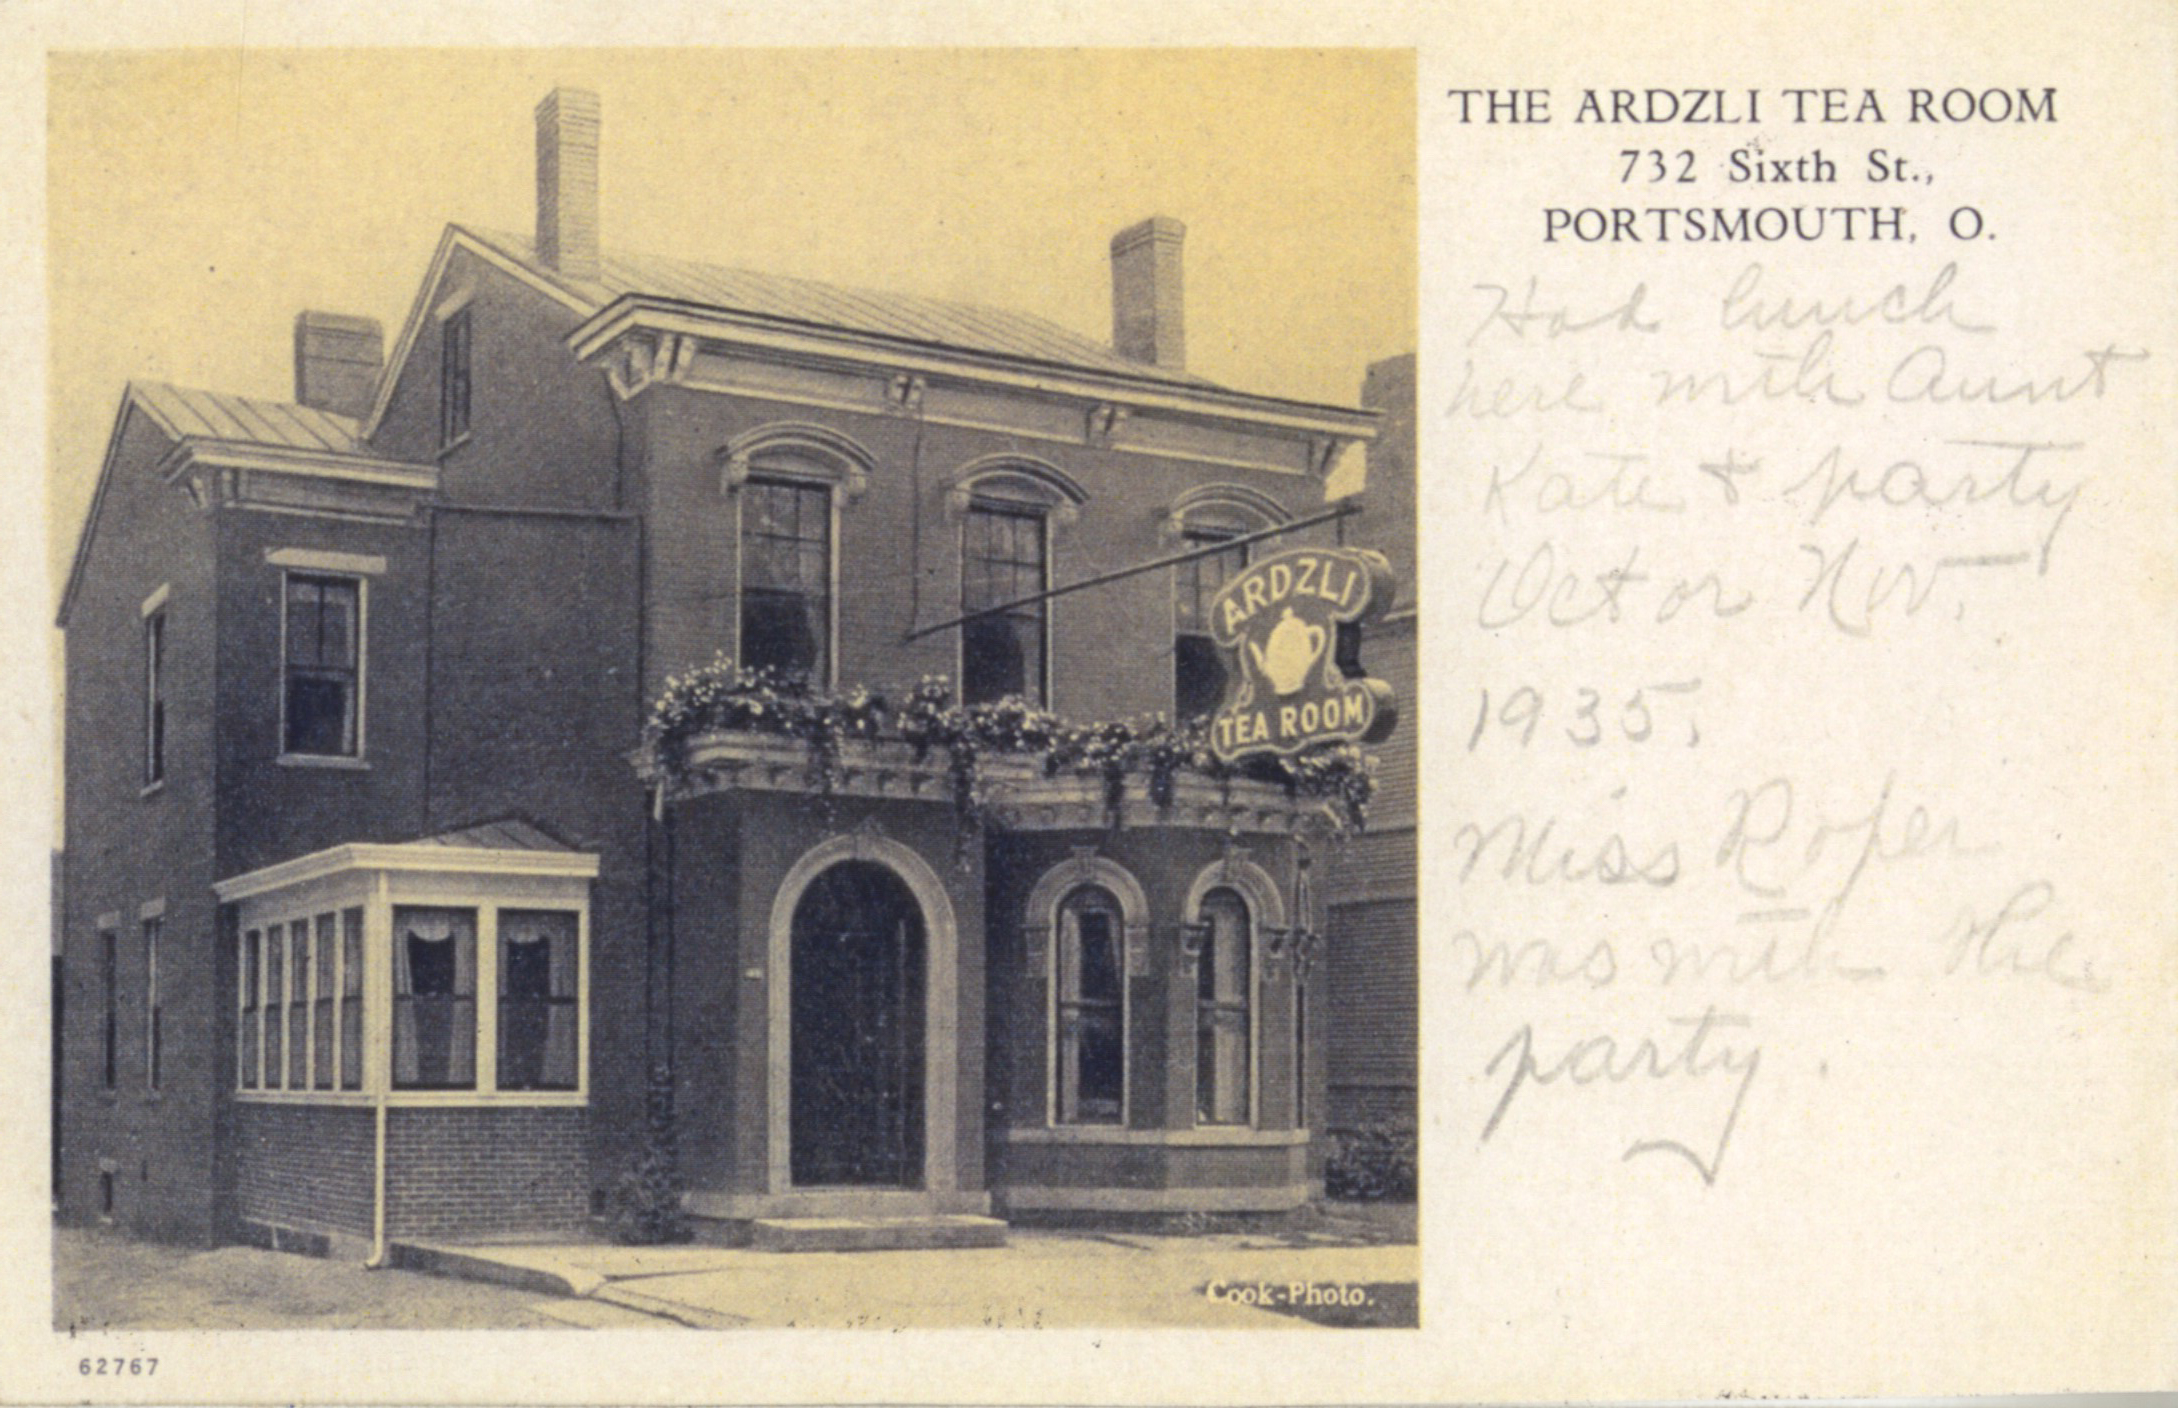 THE ARDZLI TEA ROOM
732 Sixth St.,
PORTSMOUTH, O.
Had lunch
here with Aunt
Kate & party
Oct or Nov.
1935.
Miss Roper
was with the
party.
ARDZLI
TEA ROOM
Cook-Photo.
62767